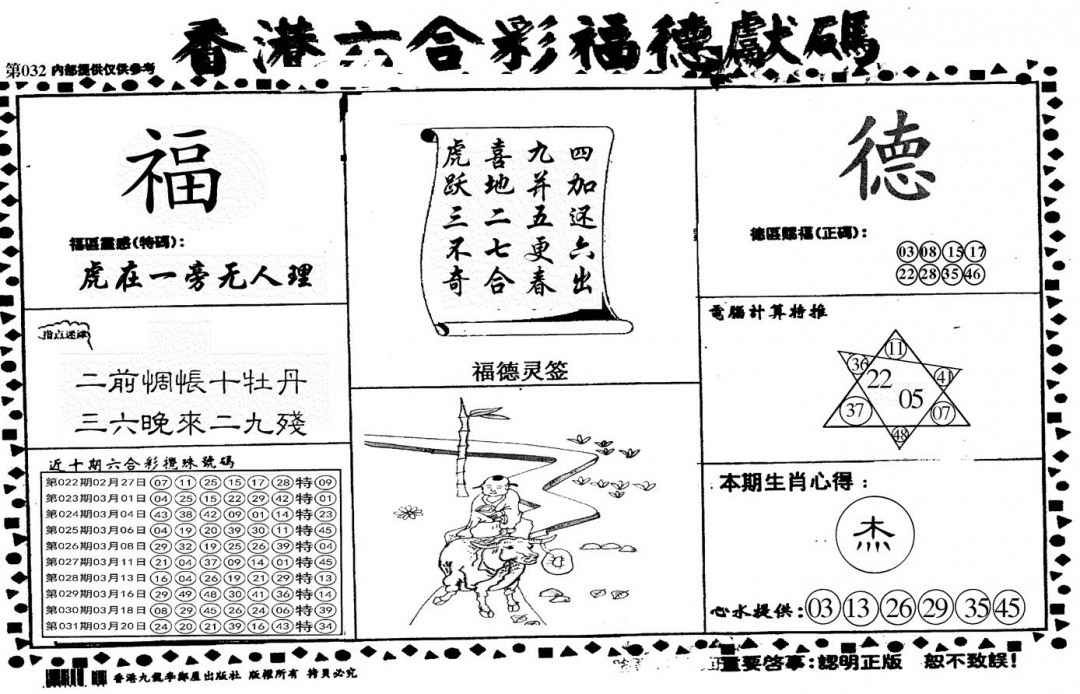 香港六合彩福德獻碼
第032 内部提供仅供参考
福
福區靈感(特碼):
虎在一旁无人理
指点迷津
二前惆悵十牡丹
三六晚來二九殘
近十期六合彩攪珠號碼
第022期02月27日 07 11 25 15 17 28 特 09
第023期03月01日 04 25 15 22 29 42 特 01
第024期03月04日 43 38 42 09 01 14 特 23
第025期03月06日 04 19 20 39 30 11 特 45
第026期03月08日 29 32 19 25 26 39 特 04
第027期03月11日 21 04 37 09 14 01 特 45
第028期03月13日 16 04 26 19 21 29 特 13
第029期03月16日 29 49 48 30 41 36 特 14
第030期03月18日 08 29 45 26 24 06 特 39
第031期03月20日 24 20 21 39 16 43 特 34
四加还六出
九并五更春
喜地二七合
虎跃三不奇
福德灵签
德
德區賜福(正碼):
03 08 15 17
22 28 35 46
電腦計算特推
11
36
22
41
05
37
07
48
本期生肖心得:
杰
心水提供: 03 13 26 29 35 45
香港九龍李鄭屋出版社 版權所有 拷貝必究
重要啓事:認明正版 恕不致誤!